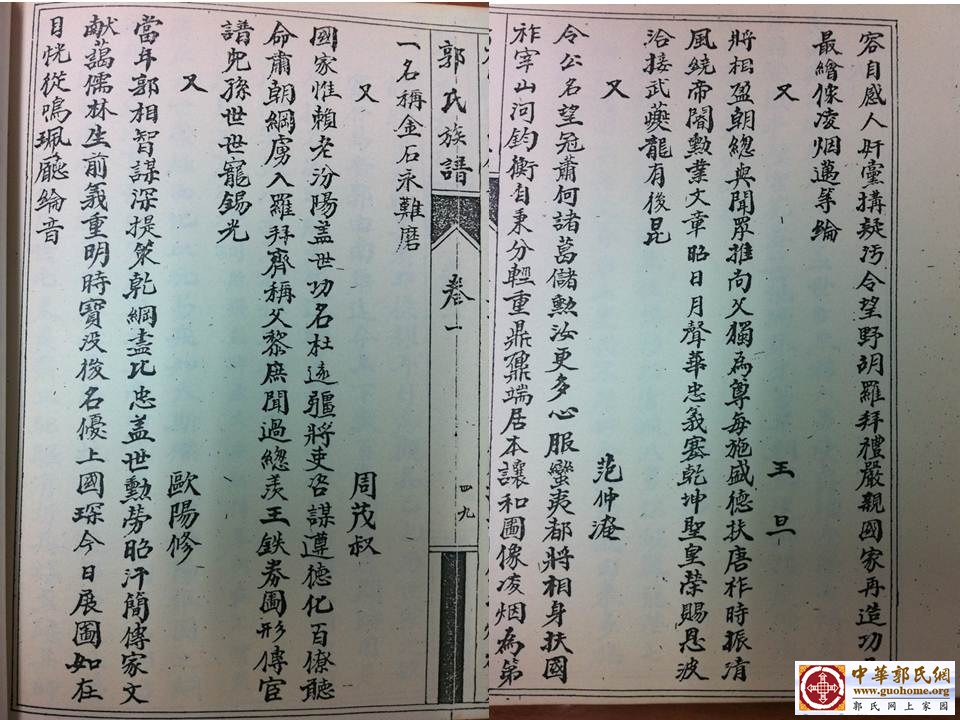 容自感人奸黨搆疑污令望野胡羅拜禮嚴親國家再造功
最繪像凌烟邁等倫
又 王旦
將相盈朝總與聞眾推尚父獨為尊每施盛德扶唐祚時振清
風繞帝閽勳業文章昭日月聲華忠義塞乾坤聖皇榮賜恩波
洽接武夔龍有後昆
又 范仲淹
令公名望冠蕭何諸葛儲勳汝更多心服蠻夷都將相身扶國
祚宰山河鈞衡自秉分輕重鼎鼐端居本讓和圖像凌烟為第
郭氏族譜 卷一 四九
一名稱金石永難磨
又 周茂叔
國家惟賴老汾陽盖世功名杜遠彊將吏咨謀遵德化百僚聽
命肅朝綱虜入羅拜齊稱父黎庶聞過總羡王鉄券圖形傳官
譜兒孫世世寵錫光
又 歐陽修
當年郭相智謀深提策乾綱盡比忠盖世勳勞昭汗簡傳家文
献藹儒林生前義重明時寶没後名優上國琛今日展圖如在
目恍從鳴珮聽綸音
中華郭氏網
www.guohome.org
郭氏网上家园